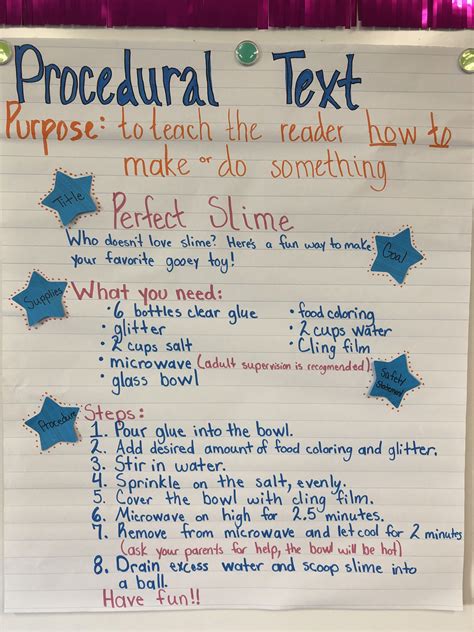 Procedural Text
Purpose: to teach the reader how to
make or do something
Title
Perfect Slime
Who doesn't love slime? Here's a fun way to make
your favorite gooey toy!
Goal
Supplies
What you need:
• 6 bottles clear glue
• glitter
• 2 cups salt
• microwave (adult supervision is recomended)
• glass bowl
• food coloring
• 2 cups water
• Cling film
Safety Statement
Procedure
Steps:
1. Pour glue into the bowl.
2. Add desired amount of food coloring and glitter.
3. Stir in water.
4. Sprinkle on the salt, evenly.
5. Cover the bowl with cling film.
6. Microwave on high for 2.5 minutes.
7. Remove from microwave and let cool for 2 minutes
(ask your parents for help, the bowl will be hot)
8. Drain excess water and scoop slime into
a ball.
Have fun!!